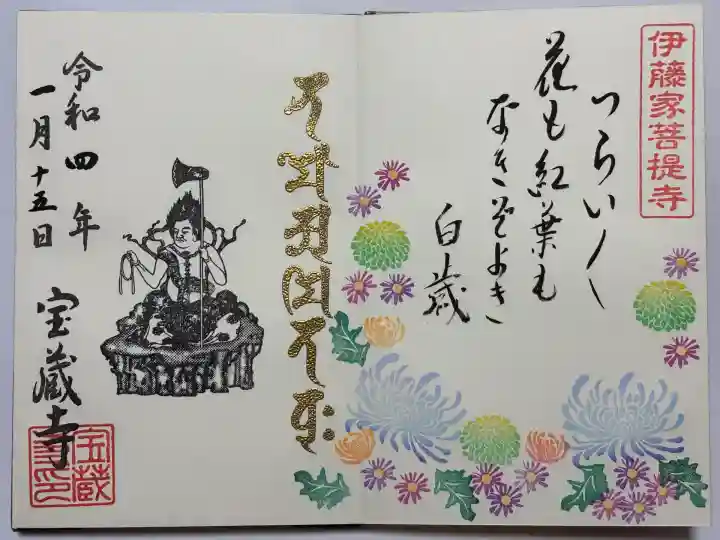 伊藤家菩提寺
つらい〳〵
花も紅葉も
なきぞよき
白歳
令和四年
一月十五日
宝蔵寺
宝蔵寺印